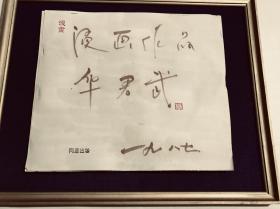 漫画作品
华君武
一九八七